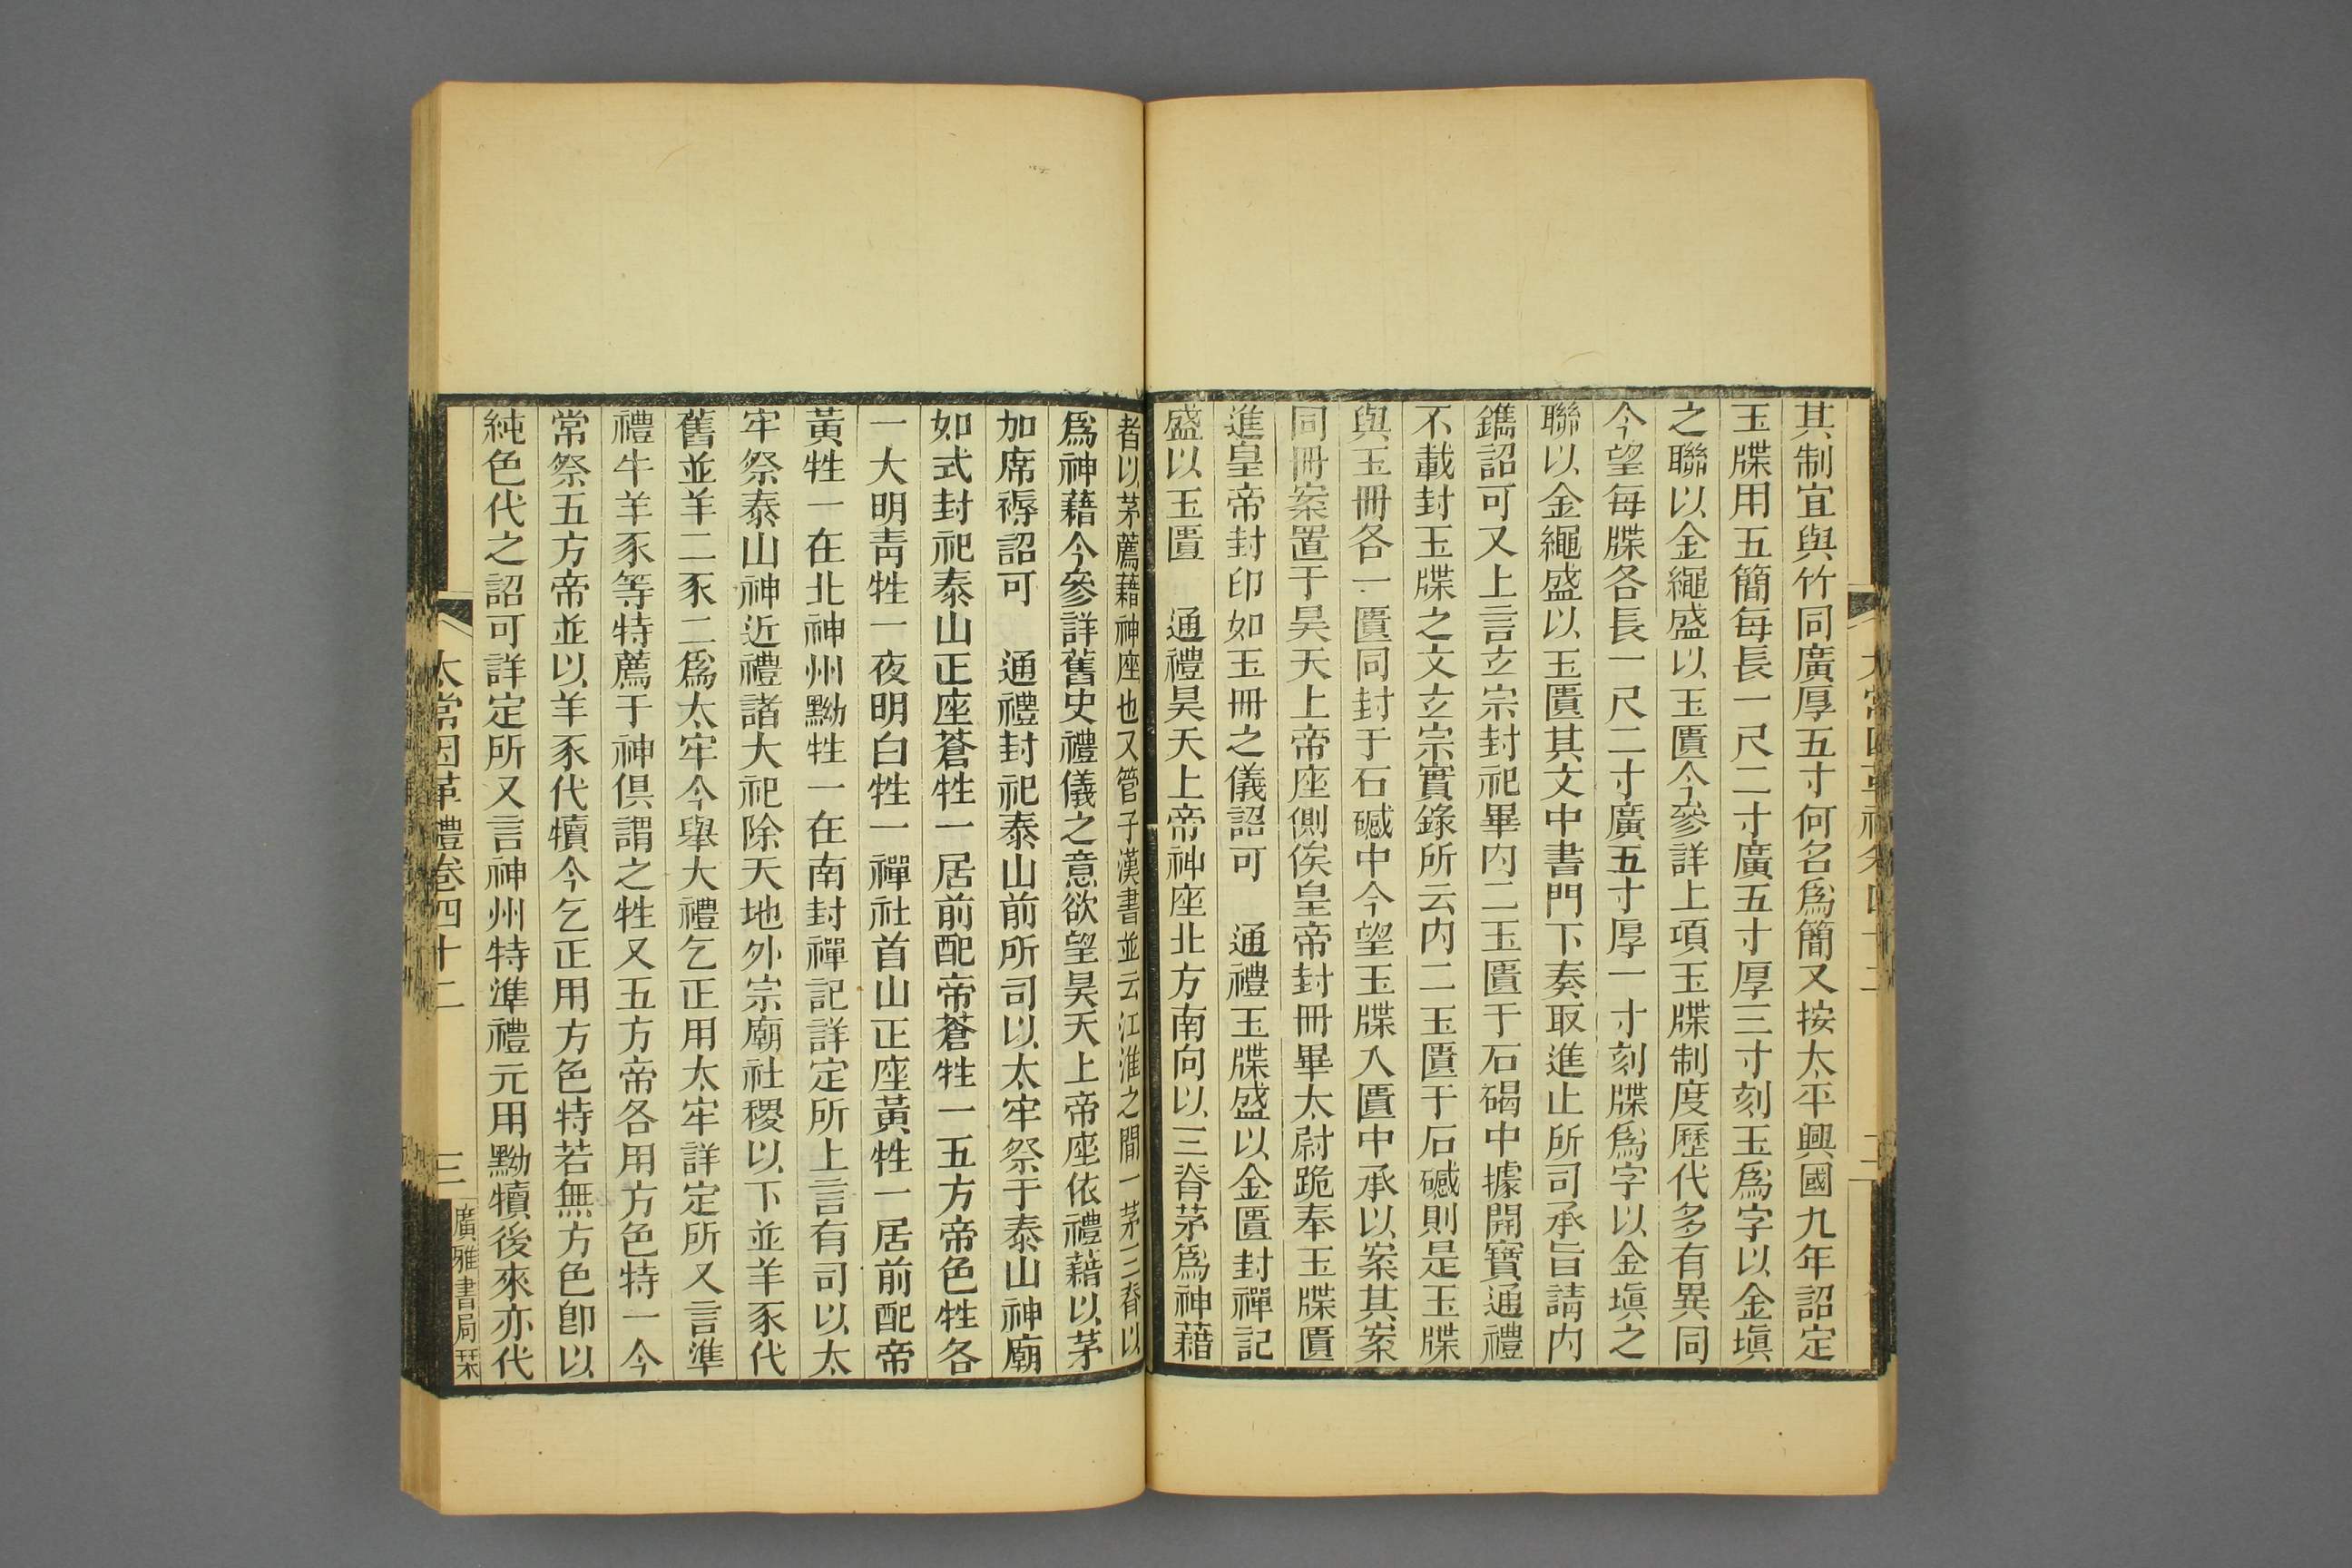 其制宜與竹同廣厚五寸何名爲簡又按太平興國九年詔定
玉牒用五簡每長一尺二寸廣五寸厚三寸刻玉爲字以金塡
之聯以金繩盛以玉匱今參詳上項玉牒制度歷代多有異同
今望每牒各長一尺二寸廣五寸厚一寸刻牒爲字以金塡之
聯以金繩盛以玉匱其文中書門下奏取進止所司承旨請内
鐫詔可又上言立宗封祀畢内二玉匱于石碣中據開寶通禮
不載封玉牒之文立宗實錄所云内二玉匱于石䃭則是玉牒
與玉冊各一匱同封于石䃭中今望玉牒入匱中承以案其案
同冊案置于昊天上帝座側俟皇帝封冊畢太尉跪奉玉牒匱
進皇帝封印如玉冊之儀詔可　通禮玉牒盛以金匱封禪記
盛以玉匱　通禮昊天上帝神座北方南向以三脊茅爲神藉
者以茅薦藉神座也又管子漢書並云江淮之間一茅三脊以
爲神藉今參詳舊史禮儀之意欲望昊天上帝座依禮藉以茅
加席褥詔可　通禮封祀泰山前所司以太牢祭于泰山神廟
如式封祀泰山正座蒼牲一居前配帝蒼牲一五方帝色牲各
一大明靑牲一夜明白牲一禪社首山正座黃牲一居前配帝
黃牲一在北神州黝牲一在南封禪記詳定所上言有司以太
牢祭泰山神近禮諸大祀除天地外宗廟社稷以下並羊豕代
舊並羊二豕二爲太牢今舉大禮乞正用太牢詳定所又言準
禮牛羊豕等特薦于神俱謂之牲又五方帝各用方色特一今
常祭五方帝並以羊豕代犢今乞正用方色特若無方色卽以
純色代之詔可詳定所又言神州特準禮元用黝犢後來亦代
太常因革禮卷四十二　三　廣雅書局栞